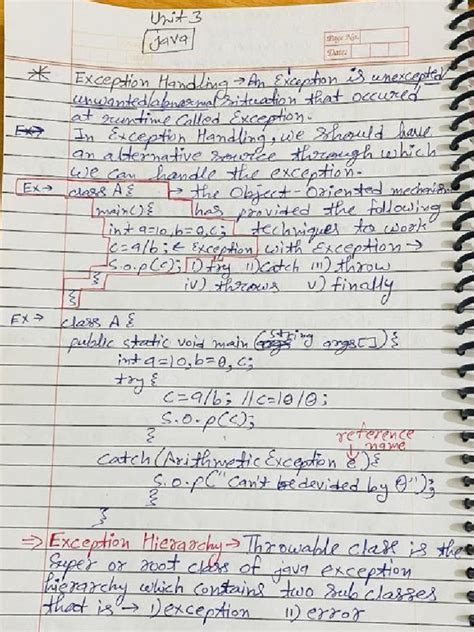 Unit 3
Java
Page No.
Date:
* Exception Handling → An Exception is unexcepted
unwanted/abnormal situation that occured
at runtime called Exception.
Ex→ In Exception Handling, we should have
an alternative source through which
we can handle the exception.
Ex→ class A{ → the Object-Oriented mechanism
main(){ has provided the following
int a=10, b=0, c; techniques to work
c=a/b; ← Exception with Exception →
S.o.p(c); i) try ii) catch iii) throw
} iv) throws v) finally
}
Ex→ class A {
public static void main (String args[]){
int a=10, b=0, c;
try {
c=a/b; //c=10/0;
S.o.p(c);
}
reference
name
catch (Arithmetic Exception e){
S.o.p("can't be devided by 0");
}
}
⇒ Exception Hierarchy → Throwable class is the
Super or root class of java exception
hierarchy which contains two sub classes
that is → i) exception ii) error